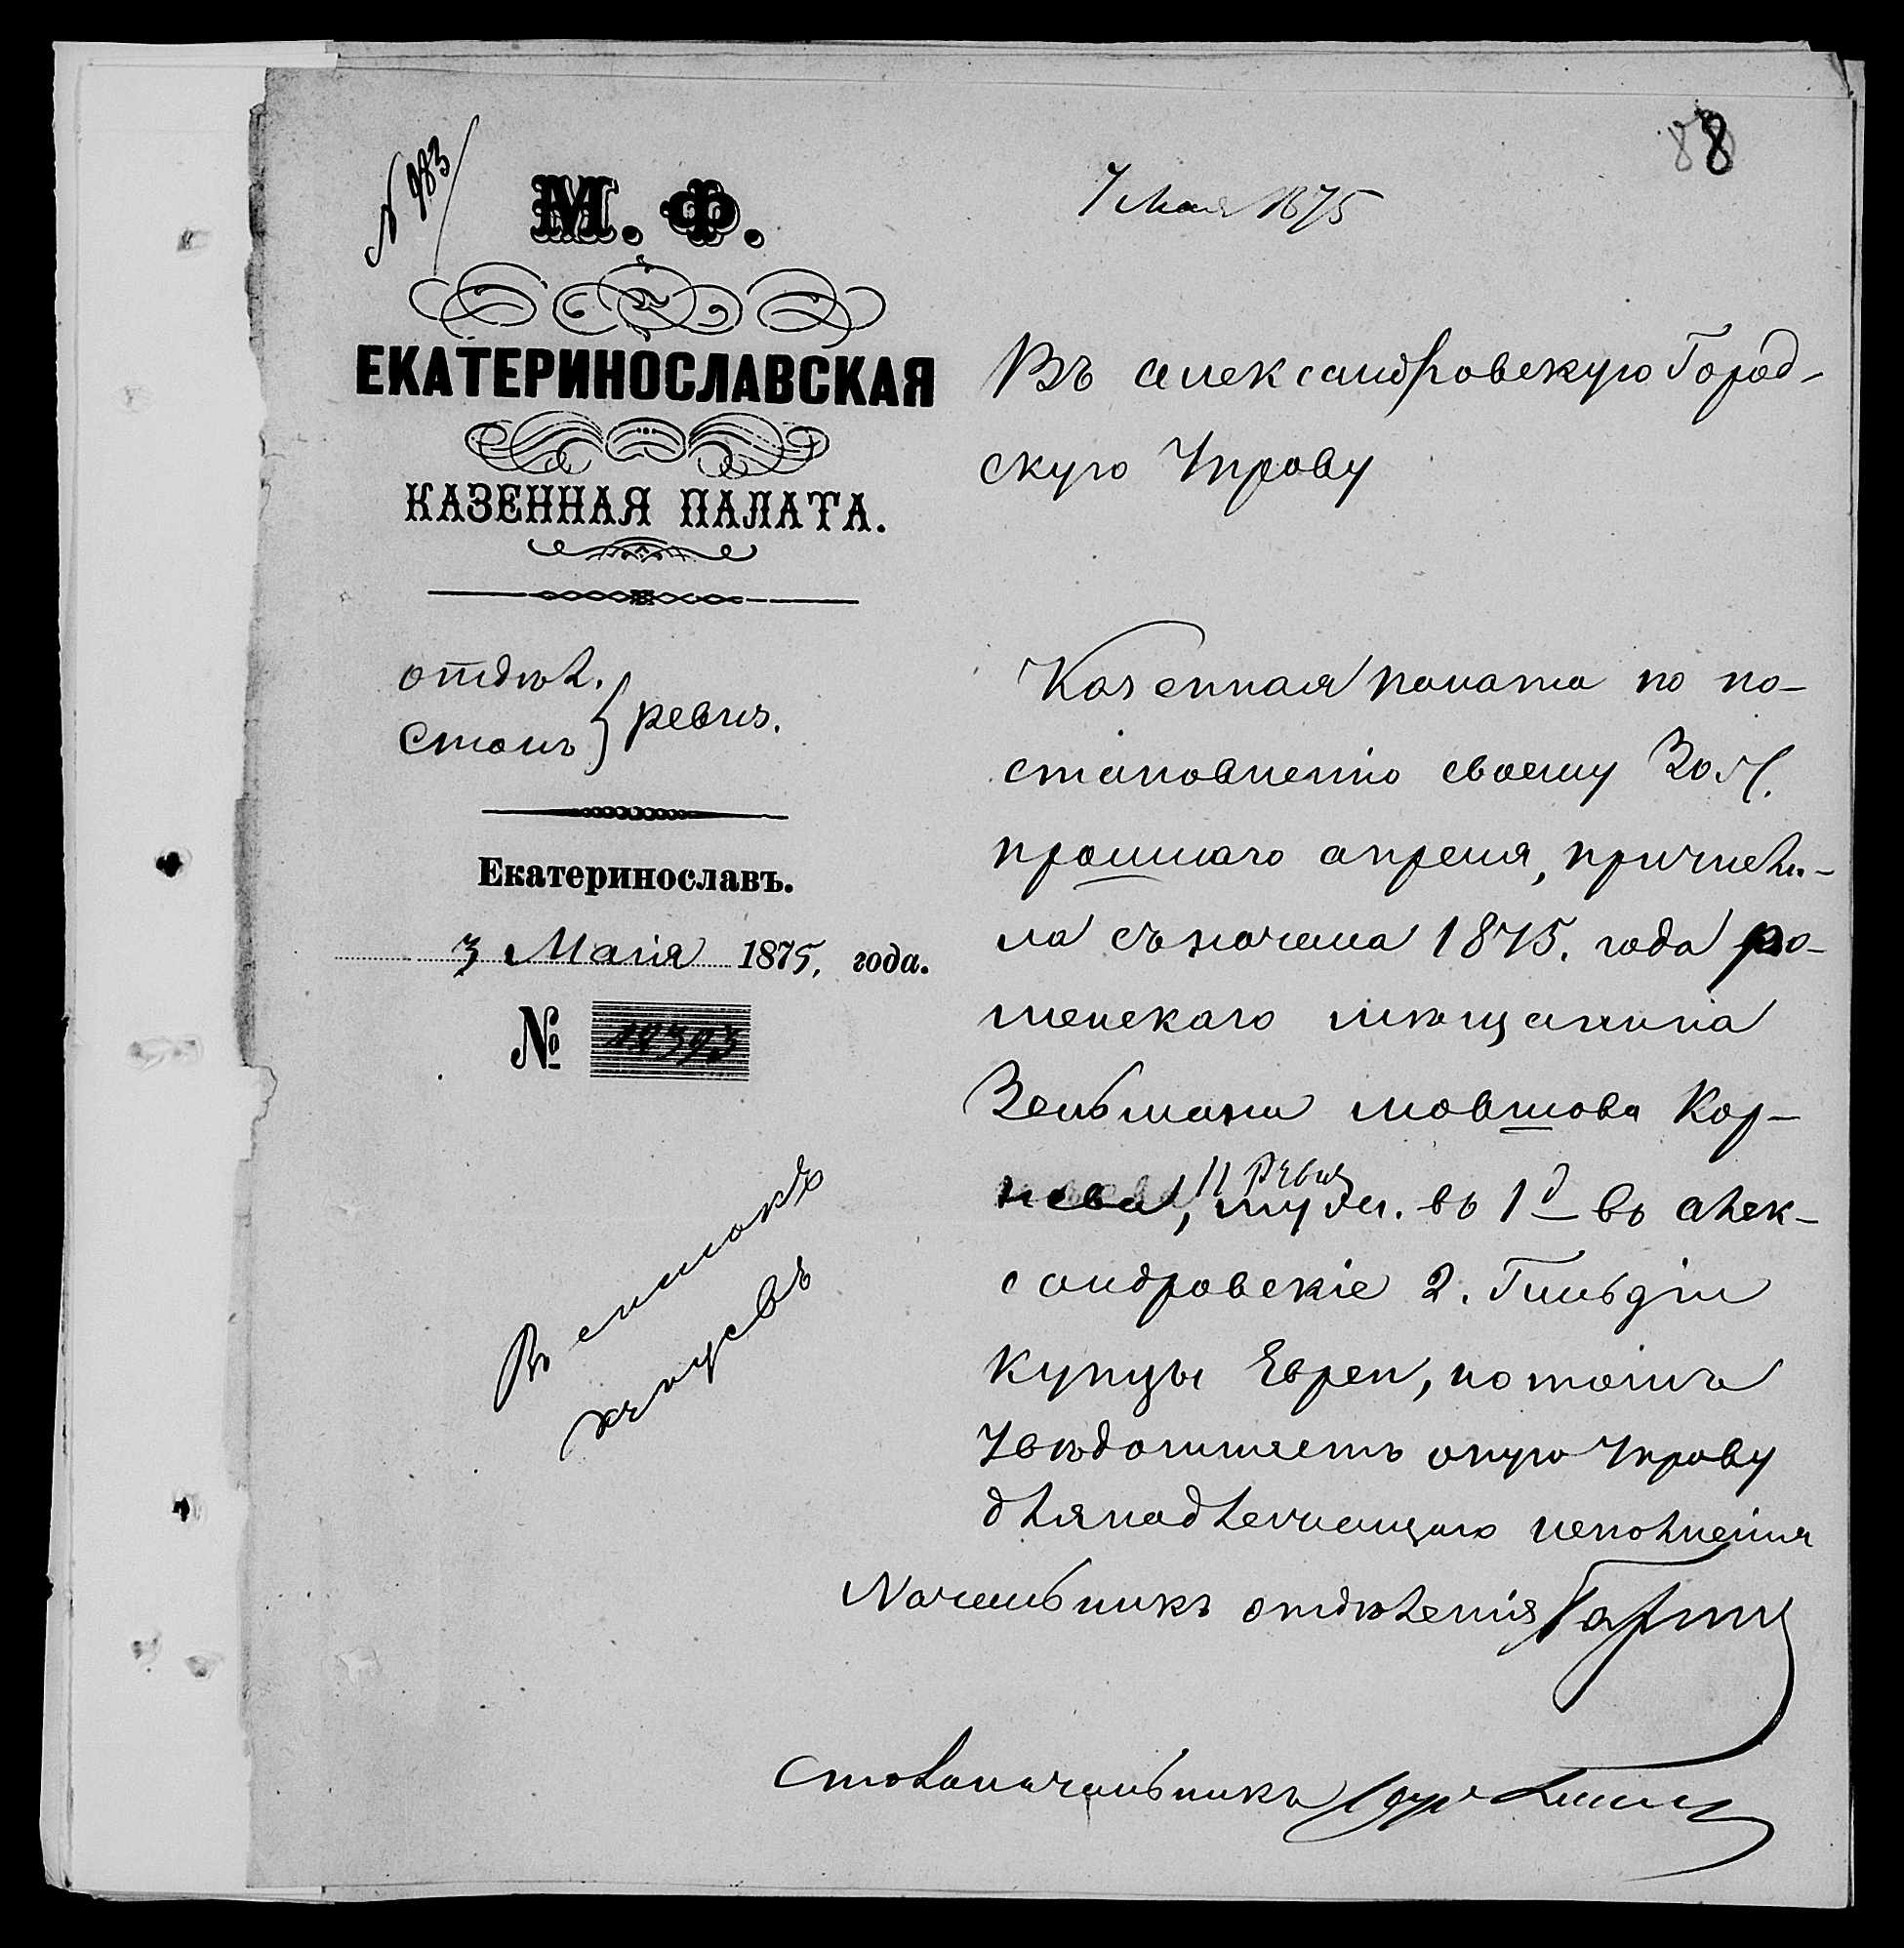 № 983
88
М. Ф.
ЕКАТЕРИНОСЛАВСКАЯ
КАЗЕННАЯ ПАЛАТА.
отдѣл.
Столъ } ревиз.
Екатеринославъ.
3 Маія 1875, года.
№ 12393
Въ списокъ
купцевъ
7 Мая 1875
Въ александровскую Город-
скую Управу
Казенная палата по по-
становленію своему 30 Ч.
прошлаго апреля, причисли-
ла съ начала 1875. года ро-
менскаго мѣщанина
Зельмана Мовшова Кор-
нева, 11 Ревиз
муж. въ 1 д въ алек-
сандровскіе 2. Гильдіи
купцы Евреи, по томъ
Увѣдомляетъ оную Управу
для надлежащаго исполненія
Начальникъ отдѣленія
Столоначальникъ